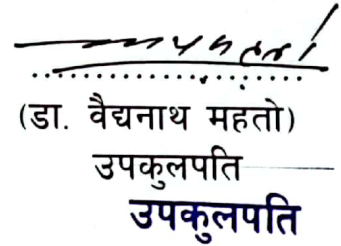 (डा. वैद्यनाथ महतो)
उपकुलपति
उपकुलपति